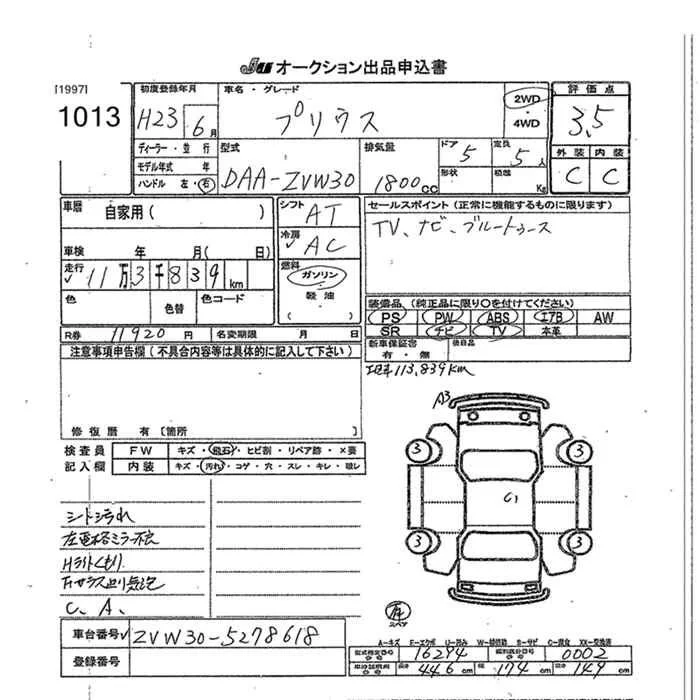 JU オークション出品申込書
[1997]
1013
初度登録年月
H23 6月
車名・グレード
プリウス
2WD
・4WD
評価点
3.5
外装 内装
C C
ディーラー・並行
モデル年式 年
ハンドル 左・右
型式
DAA-ZVW30
排気量
1800cc
ドア 5
定員 5人
形状
積載 Kg
車歴 自家用( )
車検 年 月( 日)
走行 11万3千839km
色
色替
色コード
シフト AT
冷房 AC
燃料 ガソリン
・軽油
( )
セールスポイント(正常に機能するものに限ります)
TV、ナビ、ブルートゥース
装備品(純正品に限り○を付けてください)
PS PW ABS エアB AW
SR ナビ TV 本革
新車保証書
有・無
後日品
R券 11920円
名変期限 月 日
注意事項申告欄(不具合内容等は具体的に記入して下さい)
修復歴 有〔箇所 〕
113,839km
検査員
記入欄
FW キズ・飛石・ヒビ割・リペア跡・×要
内装 キズ・汚れ・コゲ・穴・スレ・キレ・
シート汚れ
左電格ミラー不良
Hライトくもり
C、A、
A3
3
3
C1
3
3
スペア
車台番号 ZVW30-5278618
登録番号
A-キズ E-エクボ U-凹み S-サビ C-腐食 XX-交換済
型式指定番号 16294
類別区分番号 0002
長さ 446cm 幅 174cm 高さ 149cm